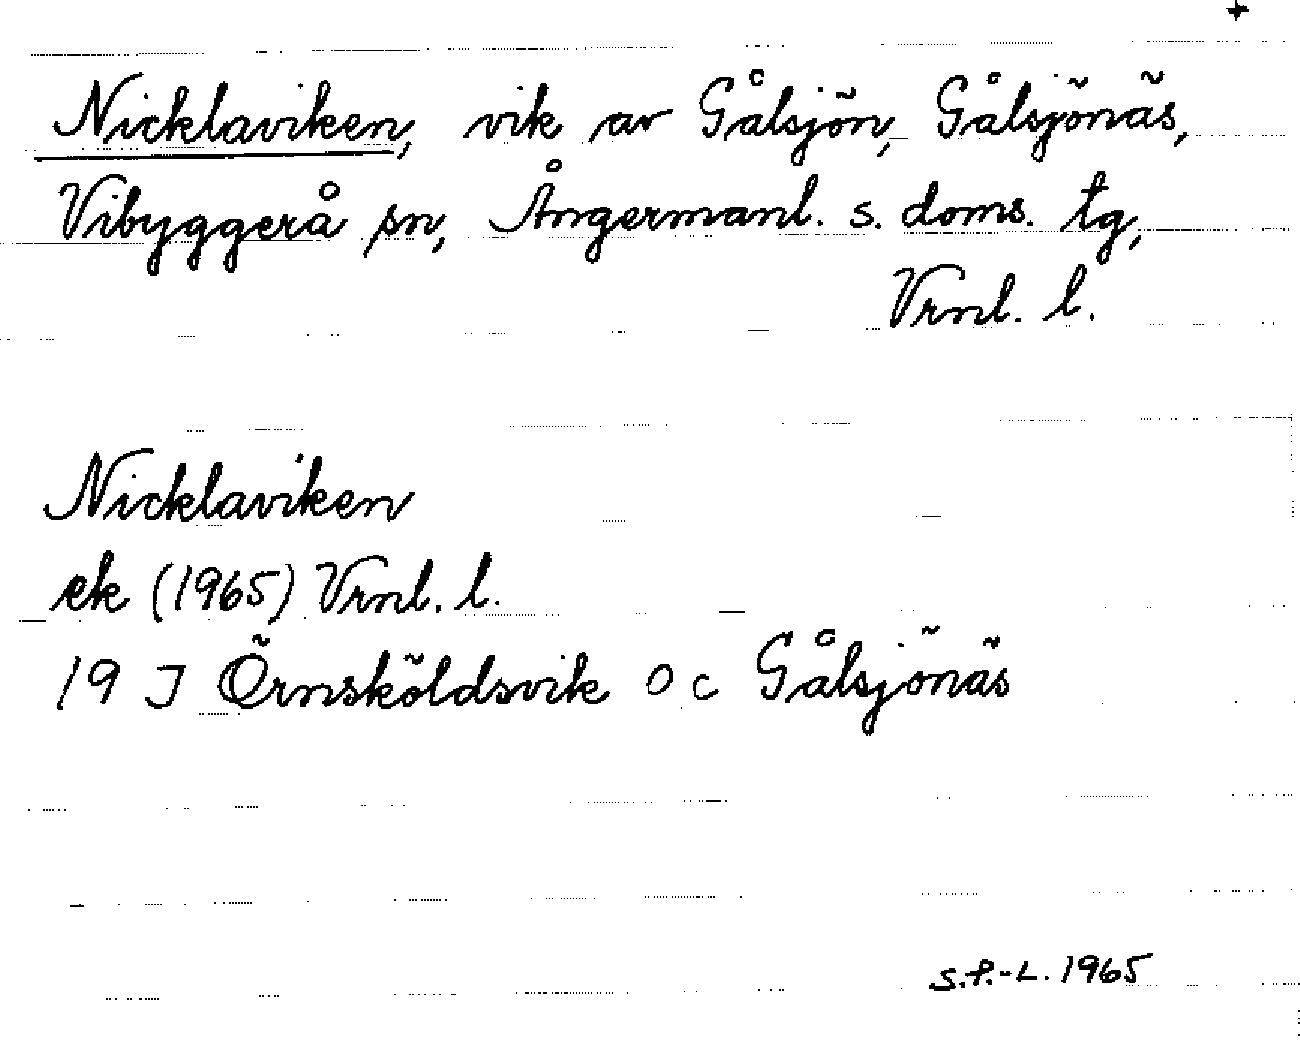 +
Nicklaviken, vik av Gålsjön, Gålsjönäs,
Vibyggerå sn, Ångermanl. s. doms. tg,
Vrnl. l.
Nicklaviken
ek (1965) Vrnl. l.
19 J Örnsköldsvik 0 c Gålsjönäs
S.P.-L. 1965